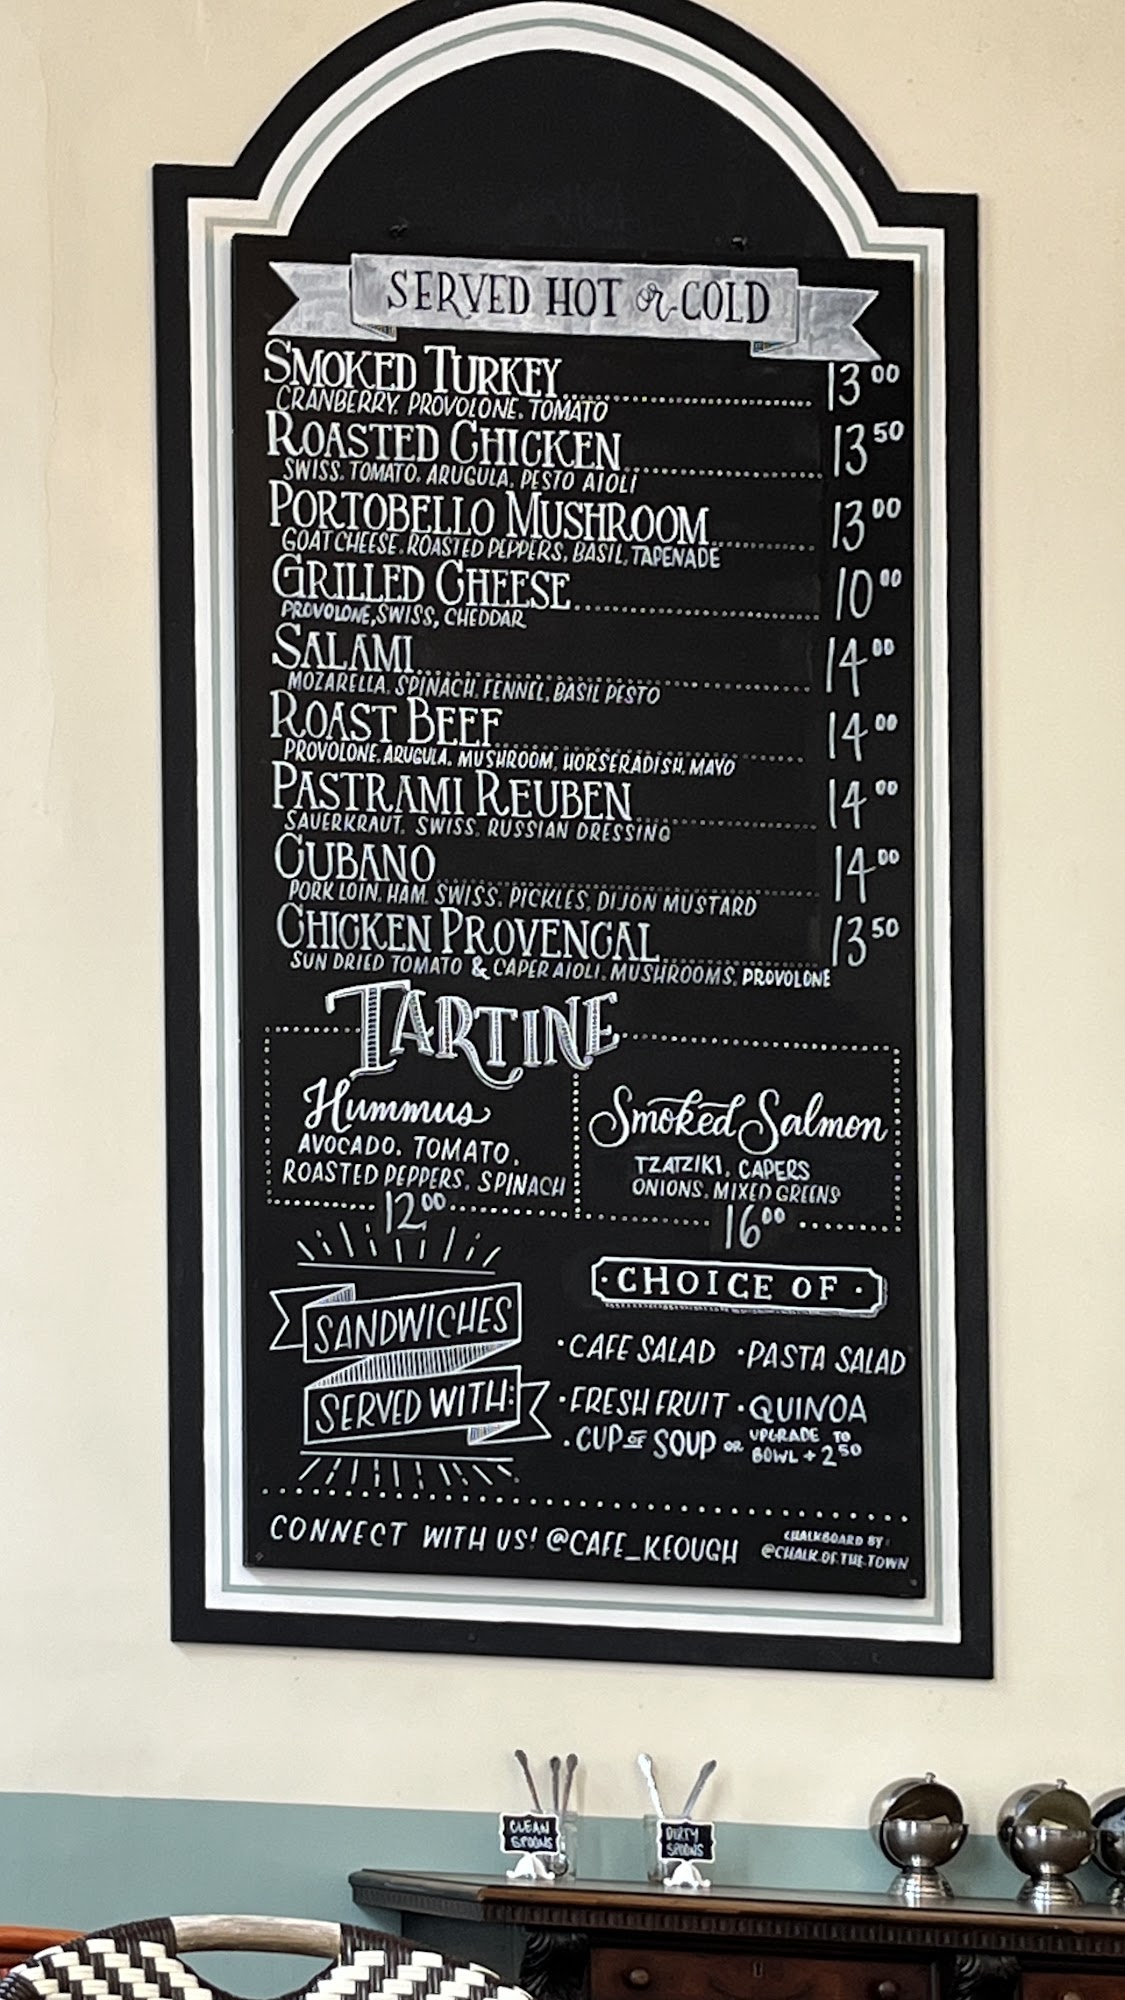 SERVED HOT or COLD
SMOKED TURKEY 13 00
CRANBERRY, PROVOLONE, TOMATO
ROASTED CHICKEN 13 50
SWISS, TOMATO, ARUGULA, PESTO AIOLI
PORTOBELLO MUSHROOM 13 00
GOAT CHEESE, ROASTED PEPPERS, BASIL, TAPENADE
GRILLED CHEESE 10 00
PROVOLONE, SWISS, CHEDDAR
SALAMI 14 00
MOZARELLA, SPINACH, FENNEL, BASIL PESTO
ROAST BEEF 14 00
PROVOLONE, ARUGULA, MUSHROOM, HORSERADISH, MAYO
PASTRAMI REUBEN 14 00
SAUERKRAUT, SWISS, RUSSIAN DRESSING
CUBANO 14 00
PORK LOIN, HAM, SWISS, PICKLES, DIJON MUSTARD
CHICKEN PROVENCAL 13 50
SUN DRIED TOMATO & CAPER AIOLI, MUSHROOMS, PROVOLONE
TARTINE
Hummus
AVOCADO, TOMATO,
ROASTED PEPPERS, SPINACH
12 00
Smoked Salmon
TZATZIKI, CAPERS
ONIONS, MIXED GREENS
16 00
SANDWICHES
SERVED WITH:
·CHOICE OF·
·CAFE SALAD ·PASTA SALAD
·FRESH FRUIT ·QUINOA
·CUP OF SOUP OR UPGRADE TO
BOWL + 2 50
CONNECT WITH US! @CAFE_KEOUGH
CHALKBOARD BY:
@CHALK.OF.THE.TOWN
CLEAN
SPOONS
DIRTY
SPOONS